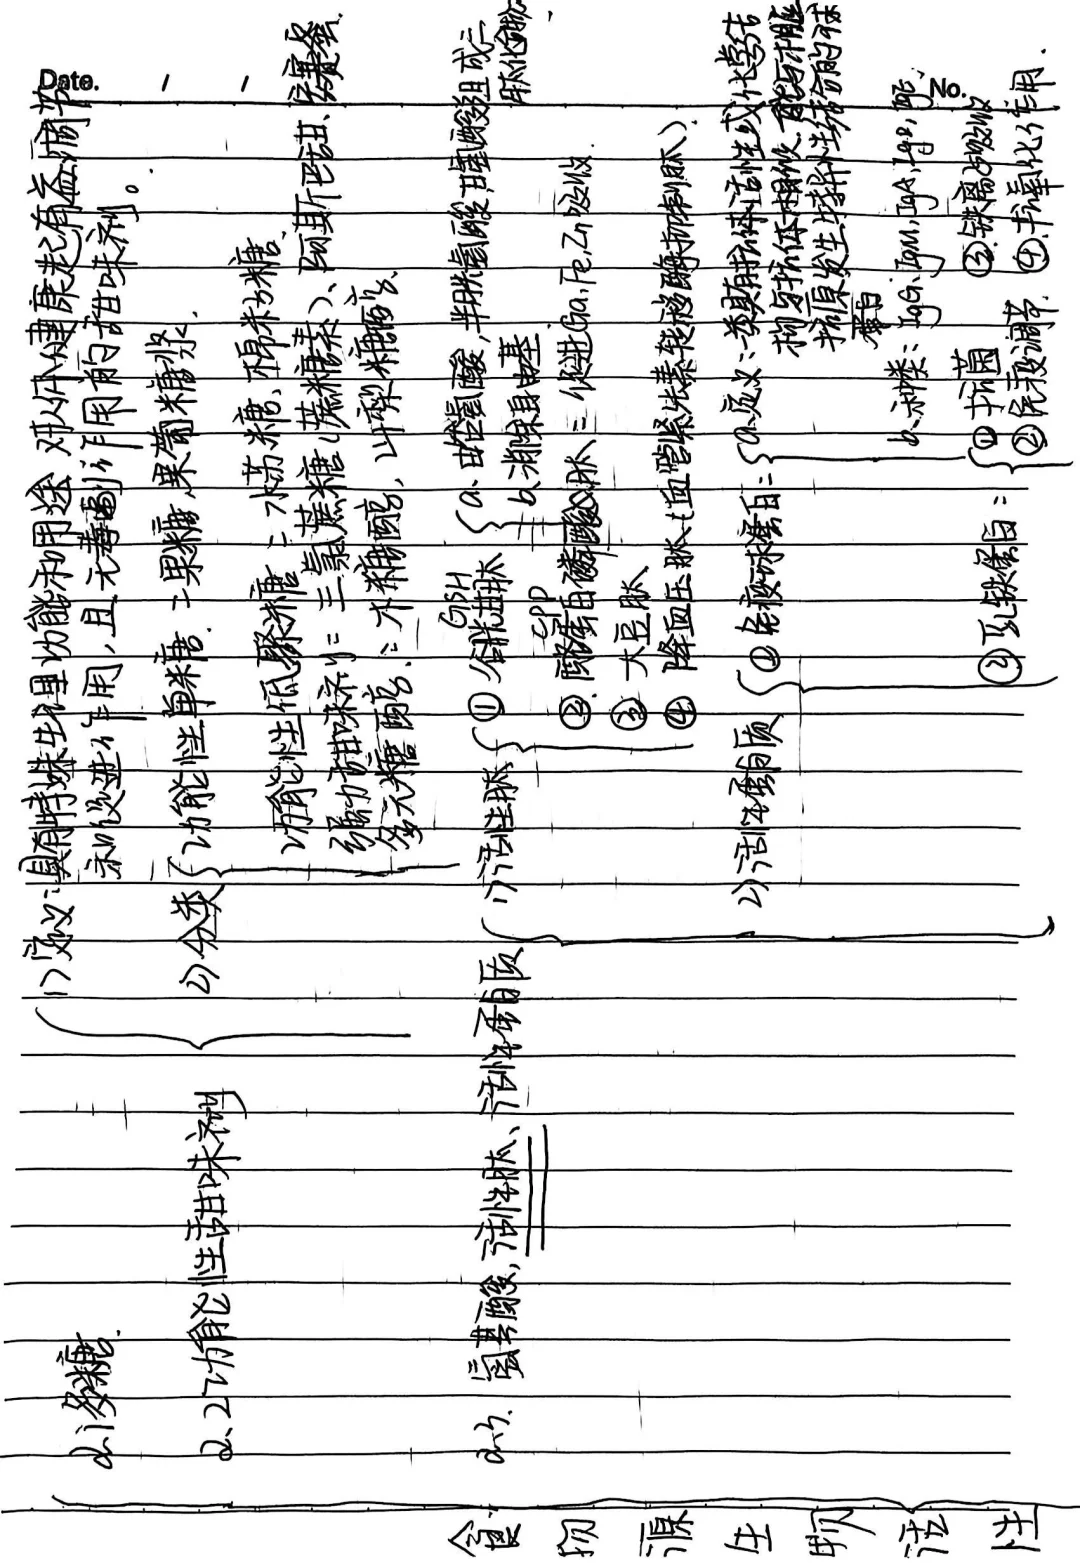 Date.
No.
食物源生物活性
2.1 多糖.
2.2 功能性甜味剂
1) 定义: 具有特殊生理功能和用途 对人体健康起有益调节
和促进作用, 且无毒副作用的甜味剂。
2) 分类
功能性单糖: 果糖, 果葡糖浆.
功能性低聚糖: 水苏糖、棉籽糖、
强力甜味剂: 三氯蔗糖(蔗糖素)、阿斯巴甜、
多元糖醇: 木糖醇、
2.3. 氨基酸, 活性肽、活性蛋白质
1) 活性肽
① 谷胱甘肽 GSH
a. 由谷氨酸, 半胱氨酸, 甘氨酸组成
b. 消除自由基
② 酪蛋白磷酸肽 CPP: 促进Ca, Fe, Zn吸收.
③ 大豆肽、
④ 降血压肽 (血管紧张素转移酶抑制肽).
2) 活性蛋白质
① 免疫球蛋白:
a. 定义: 一类具有抗体活性或化学结
构与抗体相似, 能与相应
抗原发生特异性结合的球
蛋白
b. 种类: IgG, IgM, IgA, IgD, IgE
② 乳铁蛋白:
① 抗菌
② 免疫调节.
③ 铁离子吸收
④ 抗氧化作用.